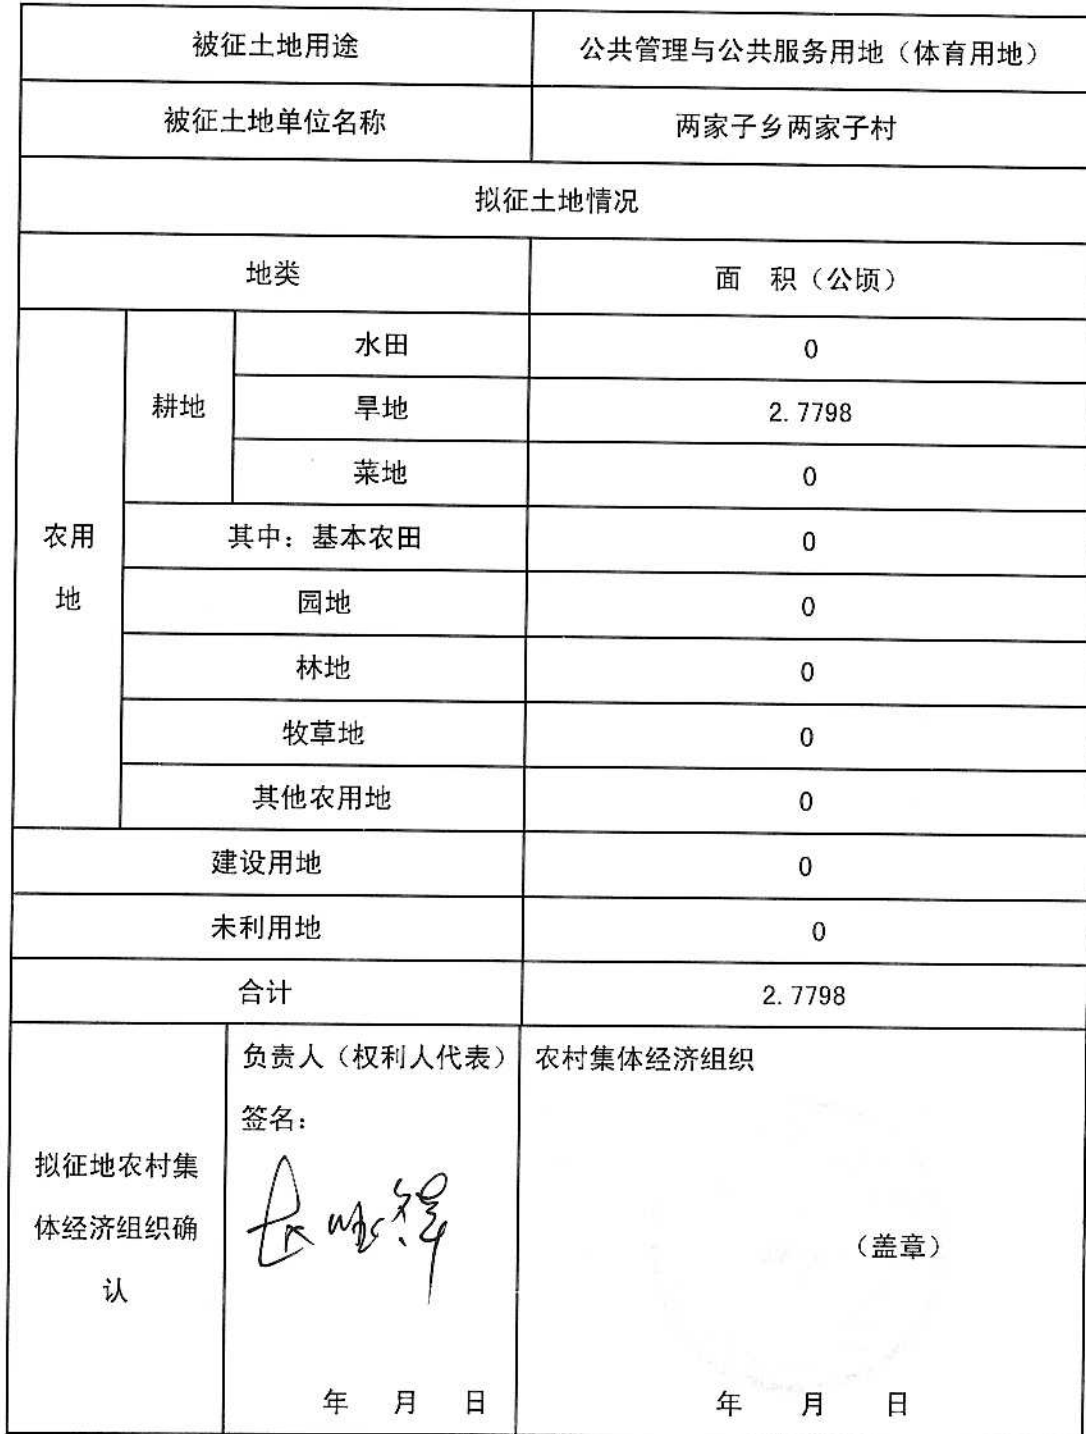 被征土地用途 公共管理与公共服务用地（体育用地）
被征土地单位名称 两家子乡两家子村
拟征土地情况
地类 面 积（公顷）
农用地
耕地
水田 0
旱地 2.7798
菜地 0
其中：基本农田 0
园地 0
林地 0
牧草地 0
其他农用地 0
建设用地 0
未利用地 0
合计 2.7798
拟征地农村集
体经济组织确
认
负责人（权利人代表）
签名：
年 月 日
农村集体经济组织
（盖章）
年 月 日